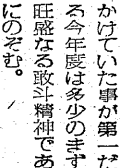 かけていた事が第一だ
る今年度は多少のきず
旺盛なる敢斗精神であ
にのぞむ。